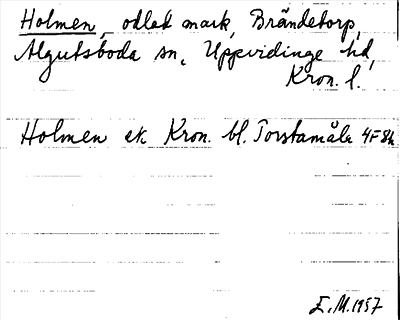 Holmen, odlad mark, Brändetorp,
Algutsboda sn, Uppvidinge hd,
Kron. l.
Holmen ek. Kron. bl. Torstamåla 4F8h
E.M. 1957